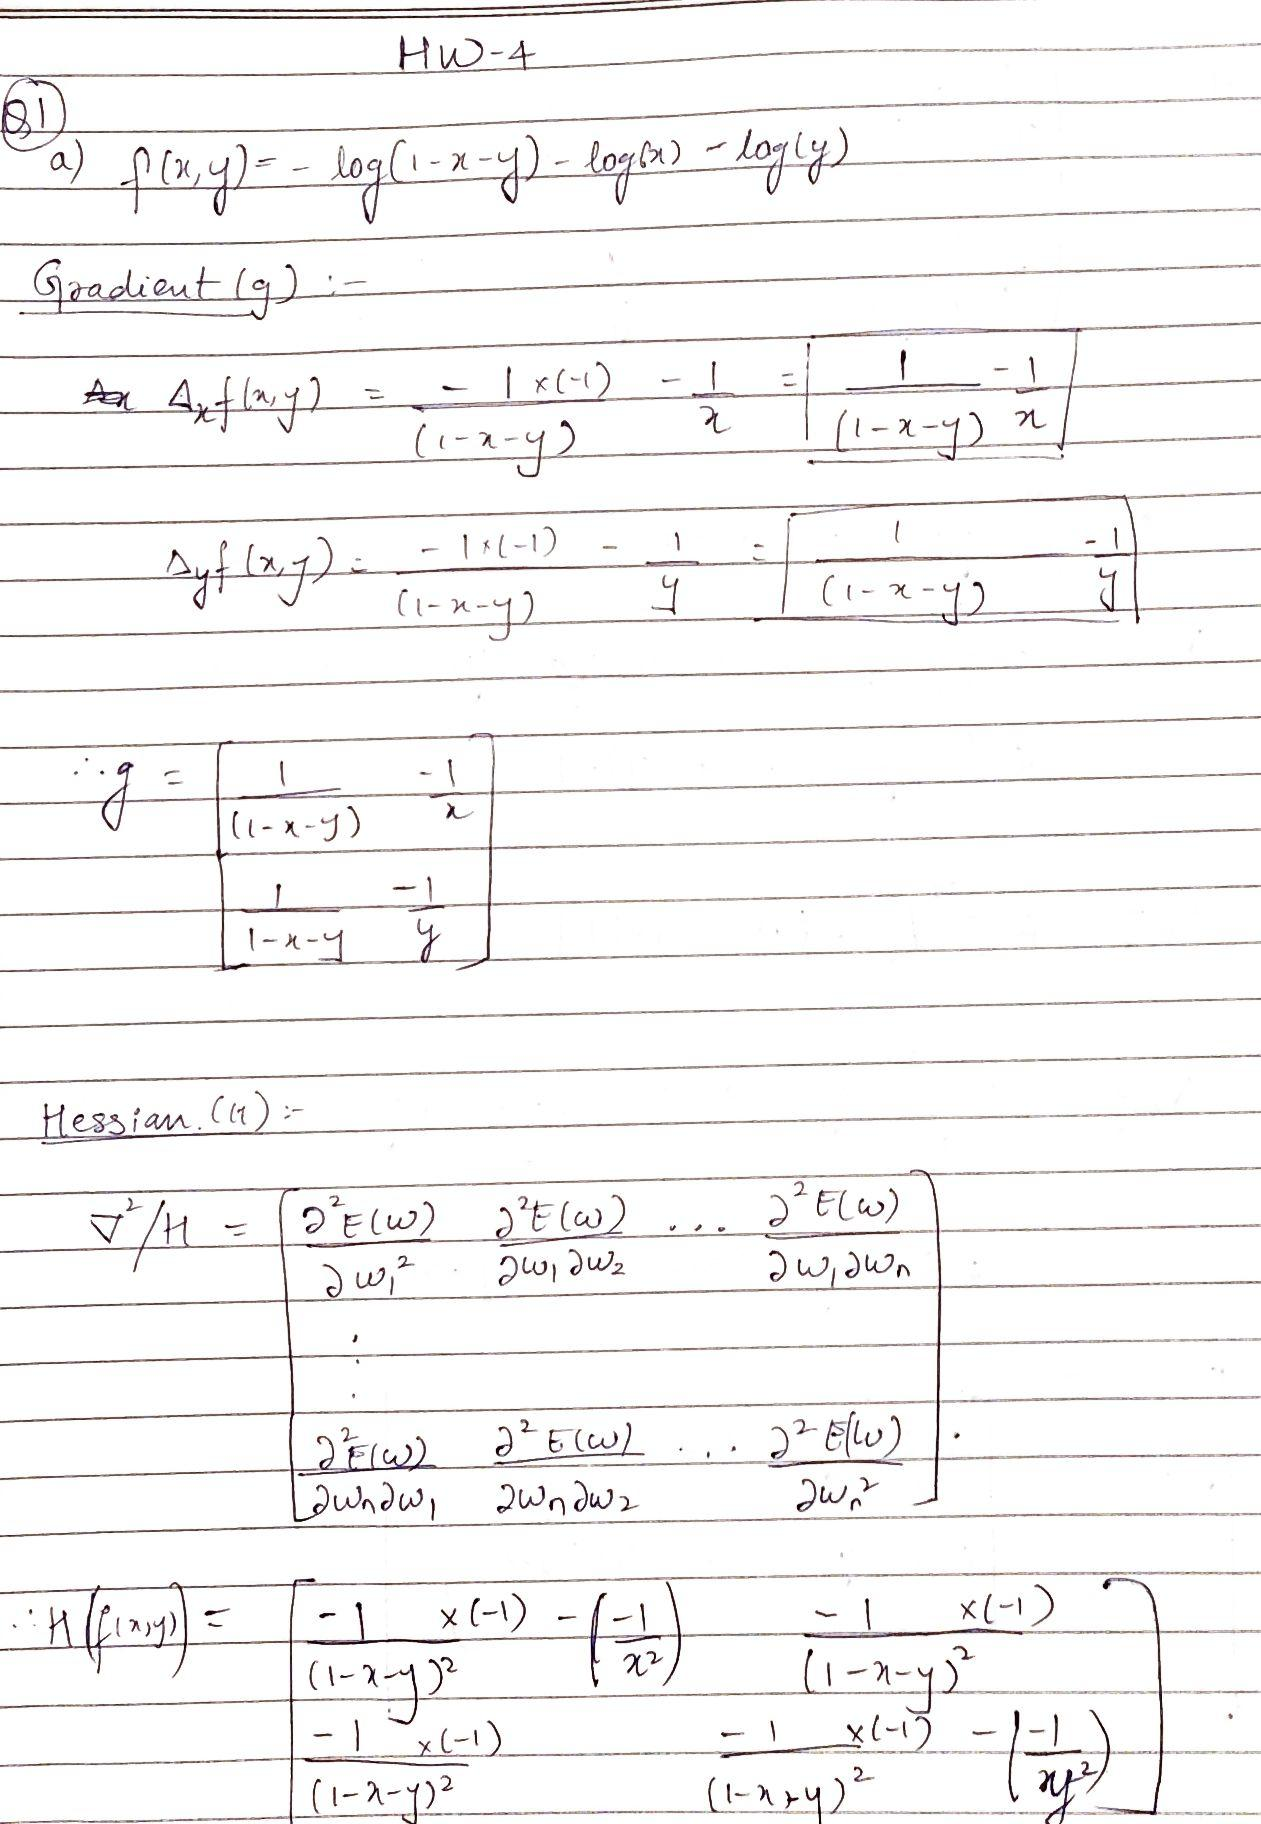 HW-4
Q1
a) f(x,y) = - log(1-x-y) - log(x) - log(y)
Gradient (g) :-
Δx f(x,y) = -1×(-1)/(1-x-y) - 1/x = 1/(1-x-y) - 1/x
Δy f(x,y) = -1×(-1)/(1-x-y) - 1/y = 1/(1-x-y) - 1/y
∴ g = [ 1/(1-x-y) - 1/x
1/(1-x-y) - 1/y ]
Hessian. (H) :-
∇²/H = [ ∂²E(w)/∂w₁² ∂²E(w)/∂w₁∂w₂ ... ∂²E(w)/∂w₁∂wn
⋮
∂²E(w)/∂wn∂w₁ ∂²E(w)/∂wn∂w₂ ... ∂²E(w)/∂wn² ] .
∴ H(f(x,y)) = [ -1/(1-x-y)² ×(-1) - (-1/x²) -1/(1-x-y)² ×(-1)
-1/(1-x-y)² ×(-1) -1/(1-x-y)² ×(-1) - (-1/y²) ]